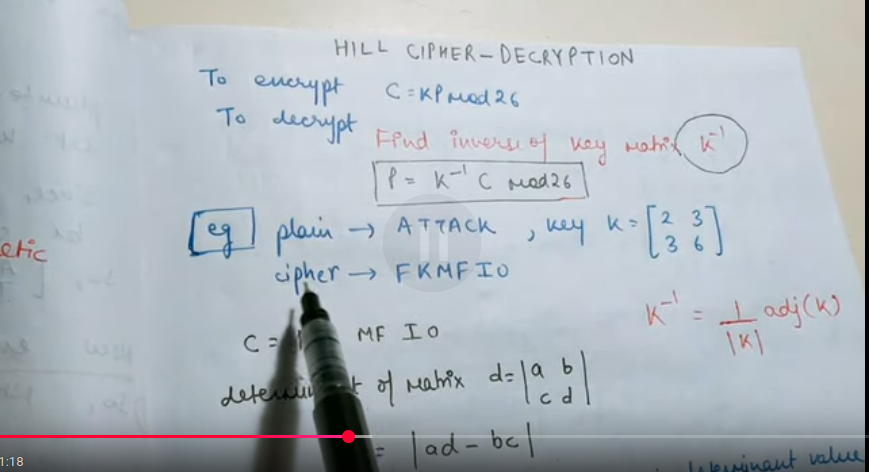 HILL CIPHER-DECRYPTION
To encrypt C=KP mod 26
To decrypt
Find inverse of key matrix K⁻¹
P = K⁻¹ C mod 26
eg plain → ATTACK , key K = [2 3
3 6]
cipher → FKMFIO
etic
K⁻¹ = 1/|K| adj(K)
C = MF IO
of matrix d = |a b
c d|
= |ad - bc|
determinant value
1:18